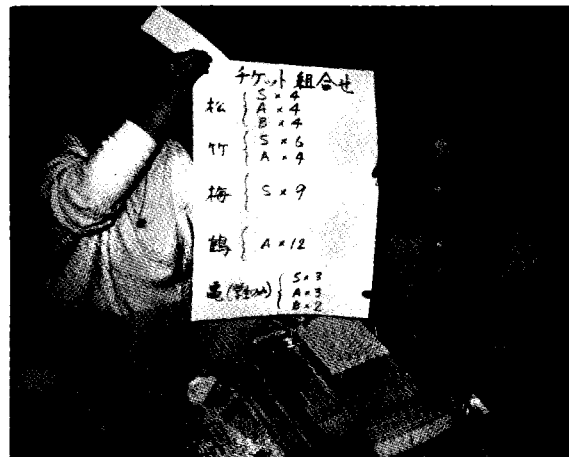 チケット組合せ
松 { S × 4
A × 4
B × 4
竹 { S × 6
A × 4
梅 { S × 9
鶴 { A × 12
亀(学生のみ) { S × 3
A × 3
B × 2